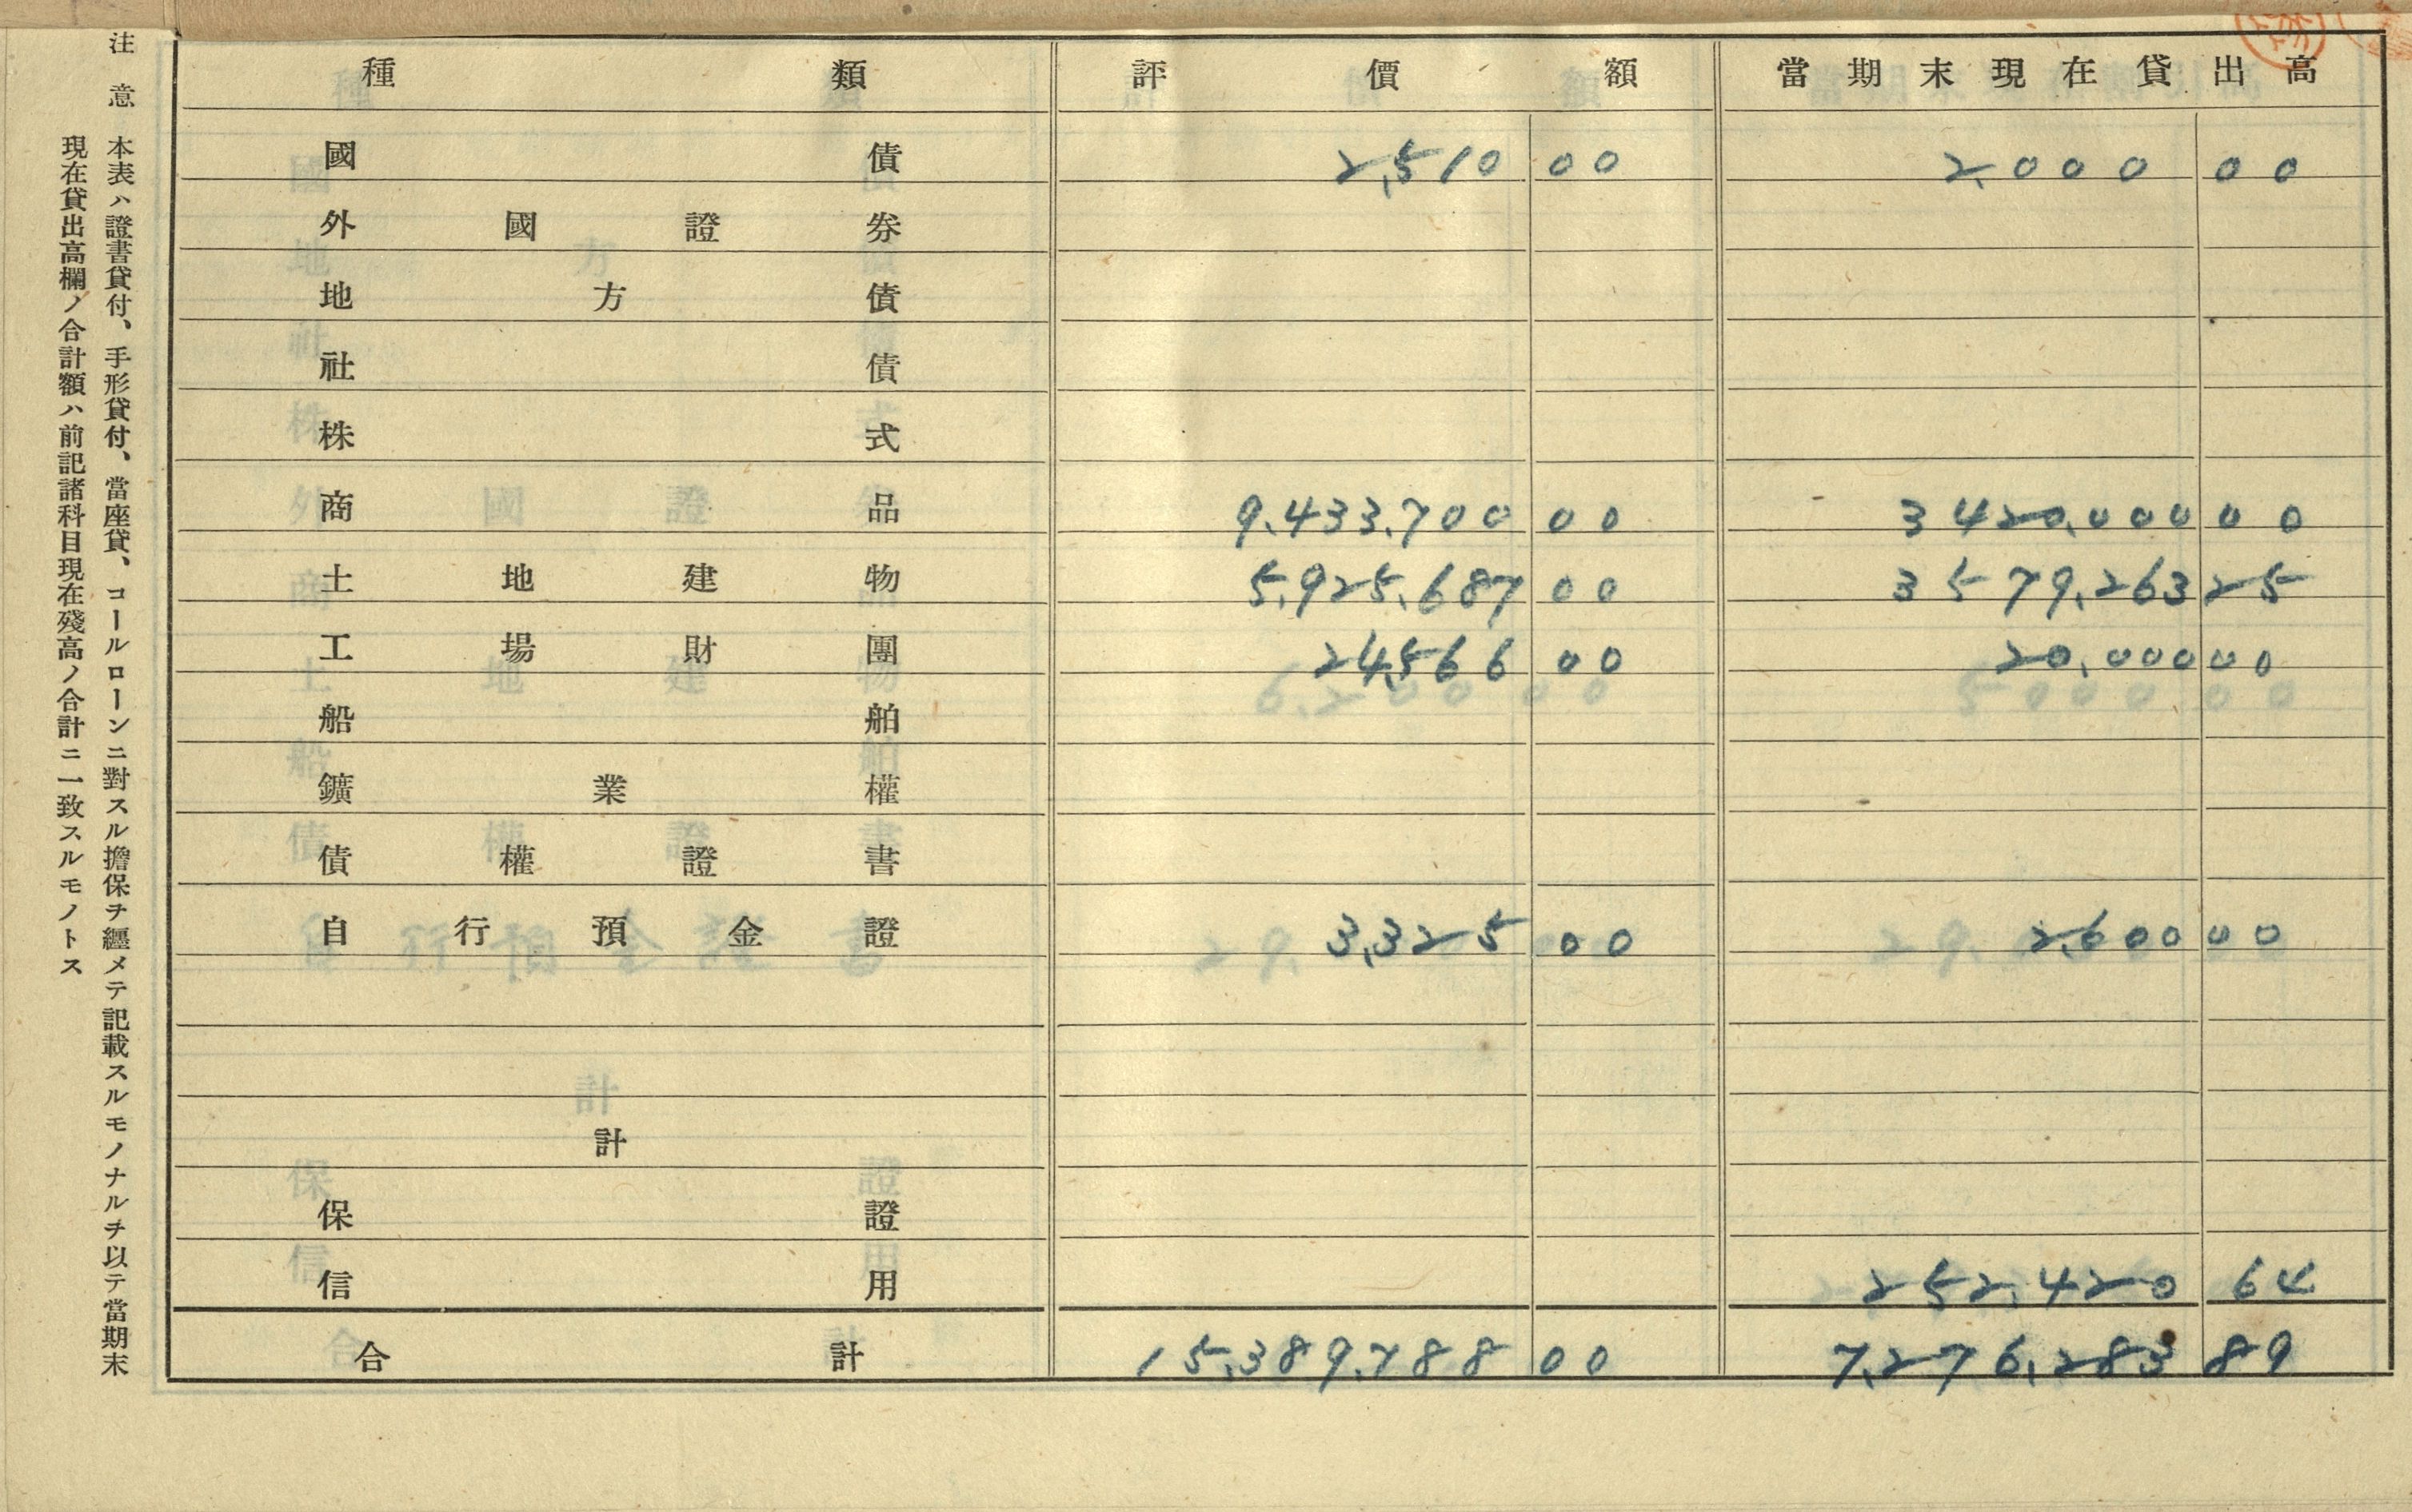 種類 評價額 當期末現在貸出高
國債 2,510 00 2,000 00
外國證券
地方債
社債
株式
商品 9,433,700 00 3420,000 00
土地建物 5,925,687 00 3579,263 25
工場財團 24,566 00 20,000 00
船舶
鑛業權
債權證書
自行預金證 3,325 00 2,600 00
計
保證
信用 252,420 64
合計 15,389,788 00 7,276,283 89
注意 本表ハ證書貸付、手形貸付、當座貸、コールローンニ對スル擔保ヲ纒メテ記載スルモノナルヲ以テ當期末
現在貸出高欄ノ合計額ハ前記諸科目現在殘高ノ合計ニ一致スルモノトス